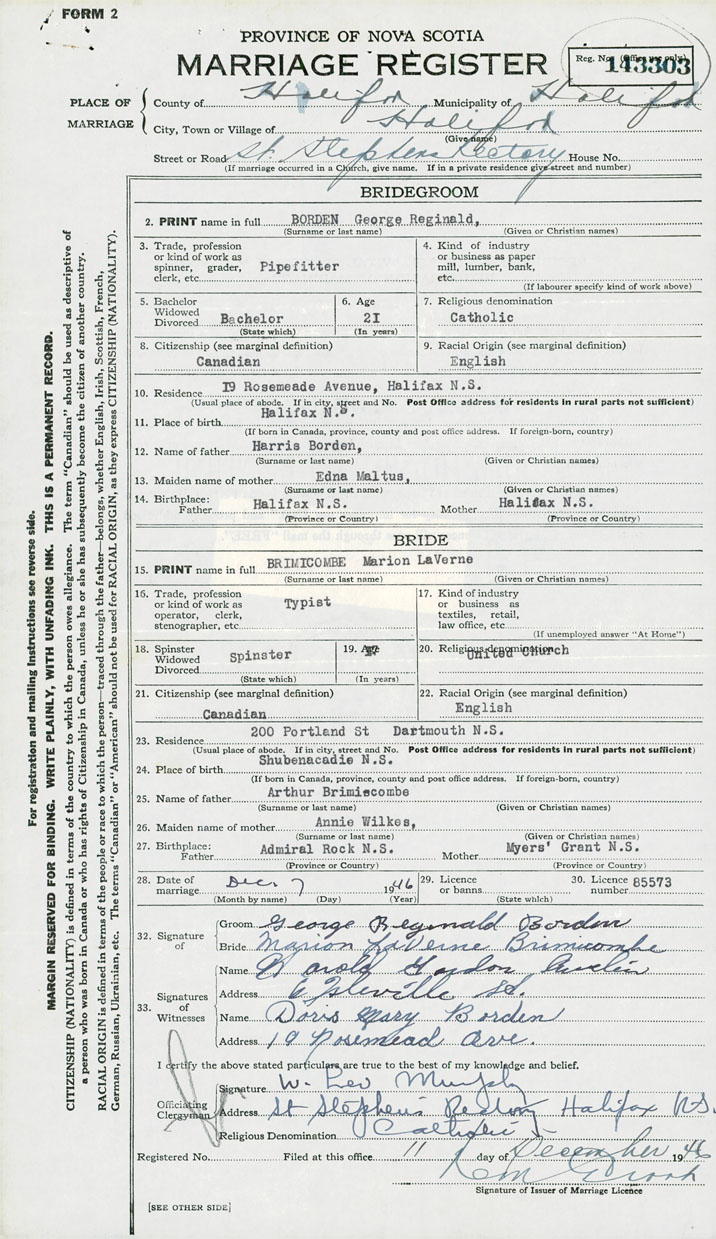 FORM 2
PROVINCE OF NOVA SCOTIA
MARRIAGE REGISTER
Reg. No. (Office use only)
143303
PLACE OF MARRIAGE
County of Halifax Municipality of Halifax
City, Town or Village of Halifax
(Give name)
Street or Road St. Stephens Rectory House No.
(If marriage occurred in a Church, give name. If in a private residence give street and number)
BRIDEGROOM
2. PRINT name in full BORDEN George Reginald,
(Surname or last name) (Given or Christian names)
3. Trade, profession or kind of work as spinner, grader, clerk, etc. Pipefitter
4. Kind of industry or business as paper mill, lumber, bank, etc.
(If labourer specify kind of work above)
5. Bachelor Widowed Divorced Bachelor
(State which)
6. Age 2I
(In years)
7. Religious denomination
Catholic
8. Citizenship (see marginal definition)
Canadian
9. Racial Origin (see marginal definition)
English
10. Residence I9 Rosemeade Avenue, Halifax N.S.
(Usual place of abode. If in city, street and No. Post Office address for residents in rural parts not sufficient)
11. Place of birth Halifax N.S.
(If born in Canada, province, county and post office address. If foreign-born, country)
12. Name of father Harris Borden,
(Surname or last name) (Given or Christian names)
13. Maiden name of mother Edna Maltus,
(Surname or last name) (Given or Christian names)
14. Birthplace: Father Halifax N.S. Mother Halifax N.S.
(Province or Country) (Province or Country)
BRIDE
15. PRINT name in full BRIMICOMBE Marion LaVerne
(Surname or last name) (Given or Christian names)
16. Trade, profession or kind of work as operator, clerk, stenographer, etc. Typist
17. Kind of industry or business as textiles, retail, law office, etc.
(If unemployed answer "At Home")
18. Spinster Widowed Divorced Spinster
(State which)
19. Age
(In years)
20. Religious denomination
United Church
21. Citizenship (see marginal definition)
Canadian
22. Racial Origin (see marginal definition)
English
23. Residence 200 Portland St Dartmouth N.S.
(Usual place of abode. If in city, street and No. Post Office address for residents in rural parts not sufficient)
24. Place of birth Shubenacadie N.S.
(If born in Canada, province, county and post office address. If foreign-born, country)
25. Name of father Arthur Brimiscombe
(Surname or last name) (Given or Christian names)
26. Maiden name of mother Annie Wilkes,
(Surname or last name) (Given or Christian names)
27. Birthplace: Father Admiral Rock N.S. Mother Myers' Grant N.S.
(Province or Country) (Province or Country)
28. Date of marriage Dec. 7 1946
(Month by name) (Day) (Year)
29. Licence or banns
(State which)
30. Licence number 85573
32. Signature of
Groom George Reginald Borden
Bride Marion LaVerne Brimicombe
33. Signatures of Witnesses
Name Gordon
Address 6 Isleville St.
Name Doris Mary Borden
Address 19 Rosemead Ave.
I certify the above stated particulars are true to the best of my knowledge and belief.
Officiating Clergyman
Signature W. Leo Murphy
Address St Stephen's Rectory Halifax N.S.
Religious Denomination Catholic
Registered No. Filed at this office 11 day of December 1946
Signature of Issuer of Marriage Licence
[SEE OTHER SIDE]
For registration and mailing instructions see reverse side.
MARGIN RESERVED FOR BINDING. WRITE PLAINLY, WITH UNFADING INK. THIS IS A PERMANENT RECORD.
CITIZENSHIP (NATIONALITY) is defined in terms of the country to which the person owes allegiance. The term "Canadian" should be used as descriptive of
a person who was born in Canada or who has rights of Citizenship in Canada, unless he or she has subsequently become the citizen of another country.
RACIAL ORIGIN is defined in terms of the people or race to which the person—traced through the father—belongs, whether English, Irish, Scottish, French,
German, Russian, Ukrainian, etc. The terms "Canadian" or "American" should not be used for RACIAL ORIGIN, as they express CITIZENSHIP (NATIONALITY).